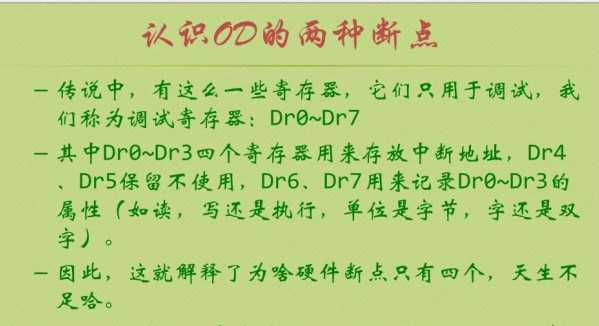 认识OD的两种断点
— 传说中，有这么一些寄存器，它们只用于调试，我
们称为调试寄存器：Dr0~Dr7
— 其中Dr0~Dr3四个寄存器用来存放中断地址，Dr4
、Dr5保留不使用，Dr6、Dr7用来记录Dr0~Dr3的
属性（如读，写还是执行，单位是字节，字还是双
字）。
— 因此，这就解释了为啥硬件断点只有四个，天生不
足哈。